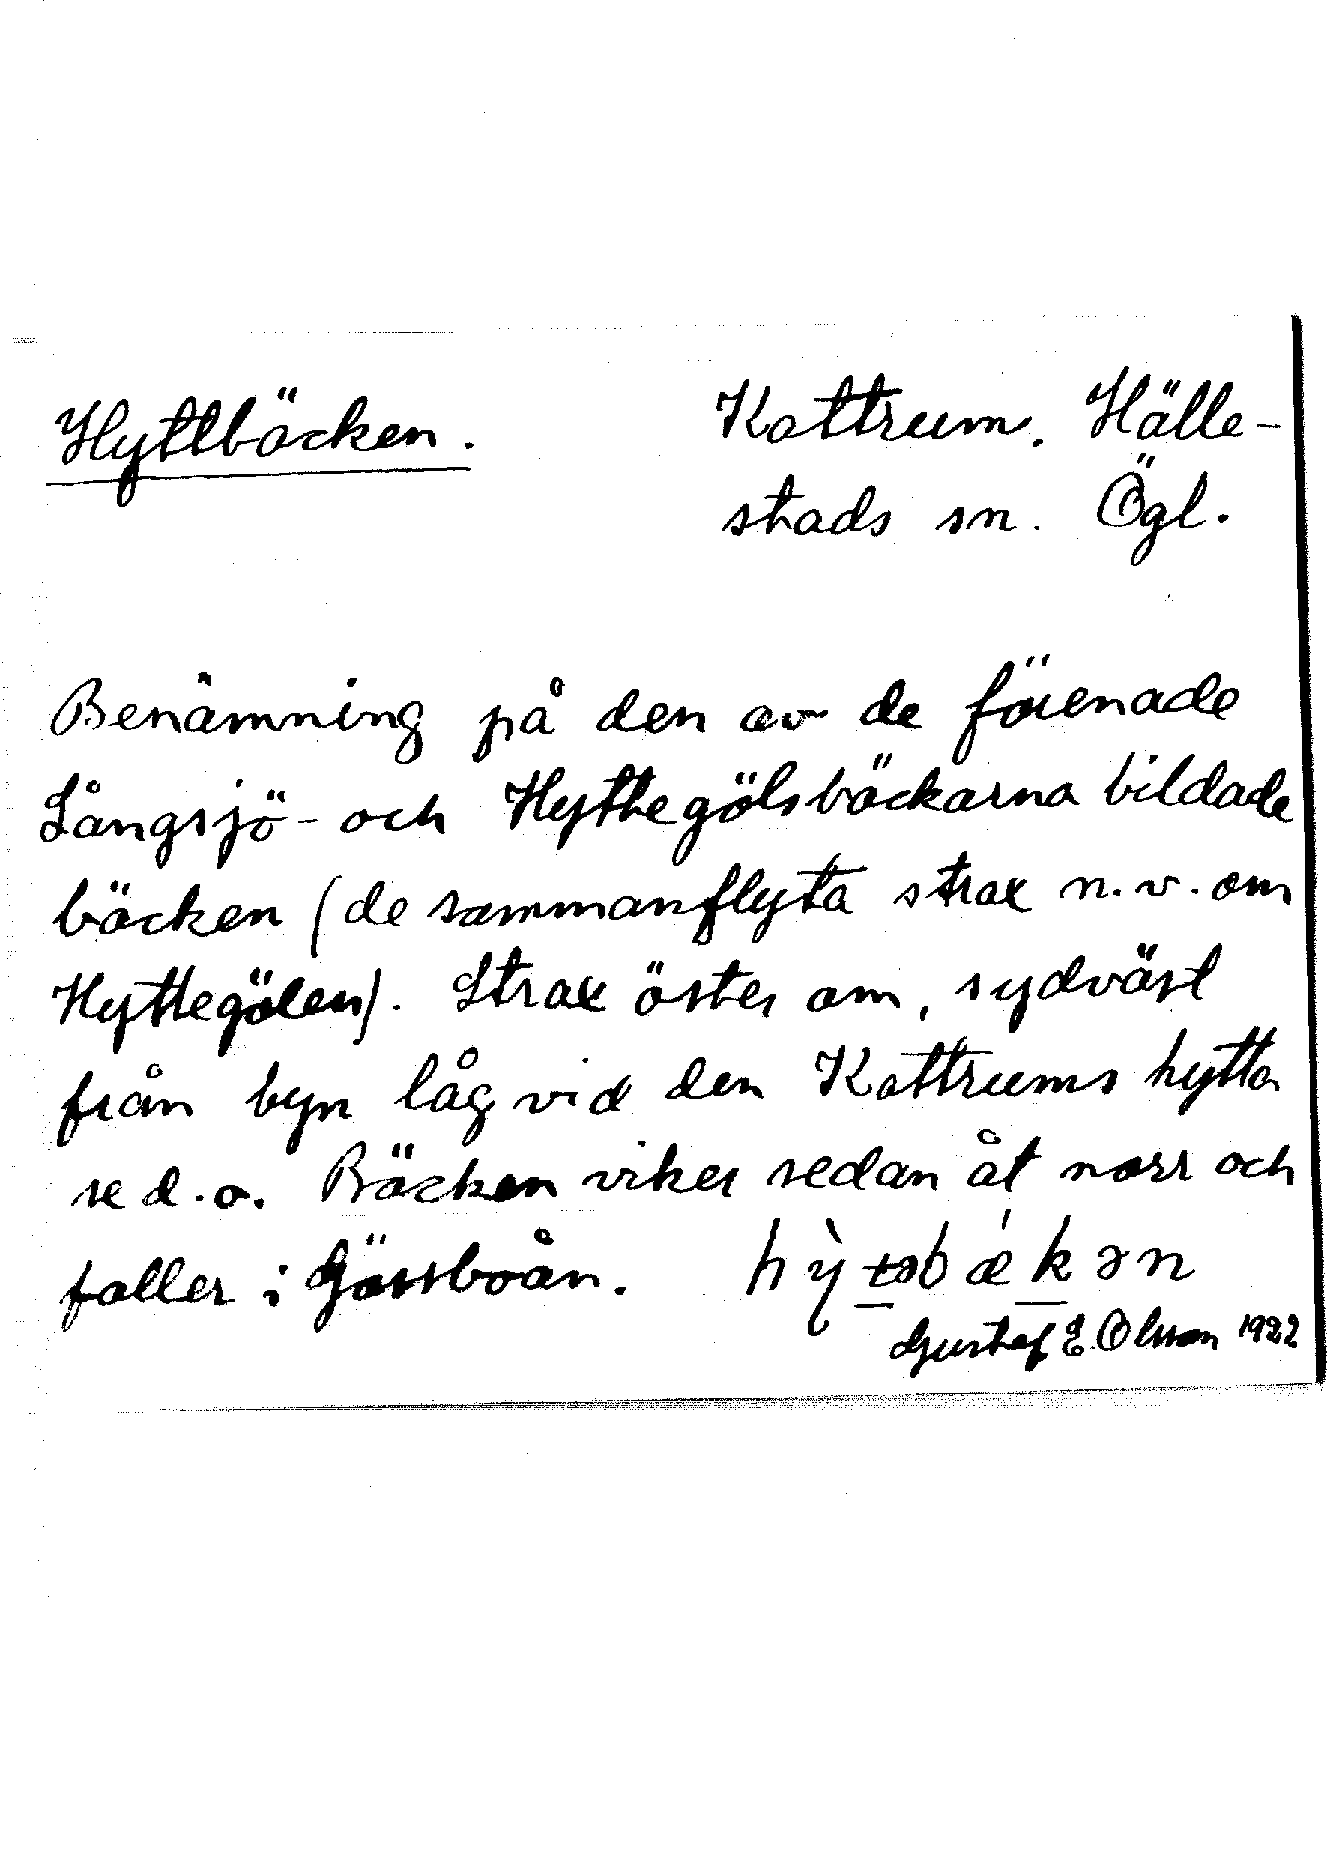 Hyttbäcken.
Kattrum. Hälle-
stads sn. Ögl.
Benämning på den av de förenade
Långsjö- och Hyttegölsbäckarna bildade
bäcken (de sammanflyta strax n.v. om
Hyttegölen). Strax öster om, sydväst
från byn låg vid den Kattrums hytta
se d.o. Bäcken viker sedan åt norr och
faller i
Gustaf E. Olsson 1922